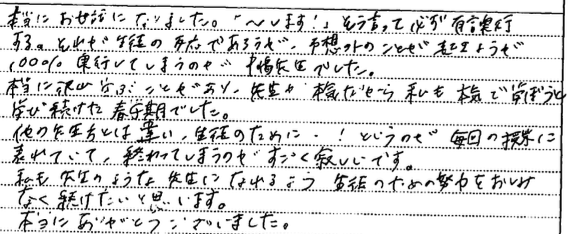 本当にお世話になりました。「〜します!」そう言って必ず有言実行
する。それが生徒の事であろうが、予想外のことが起きようが
1000%実行してしまうのが先生でした。
本当に沢山学ぶことがあり、先生が本気だから私も本気で学ぼうと
学び続けた春学期でした。
他の先生方とは違い、生徒のために…!というのが毎回の授業に
表れていて、終わってしまうのがすごく寂しいです。
私も先生のような先生になれるよう生徒のための努力をおしみ
なく続けたいと思います。
本当にありがとうございました。